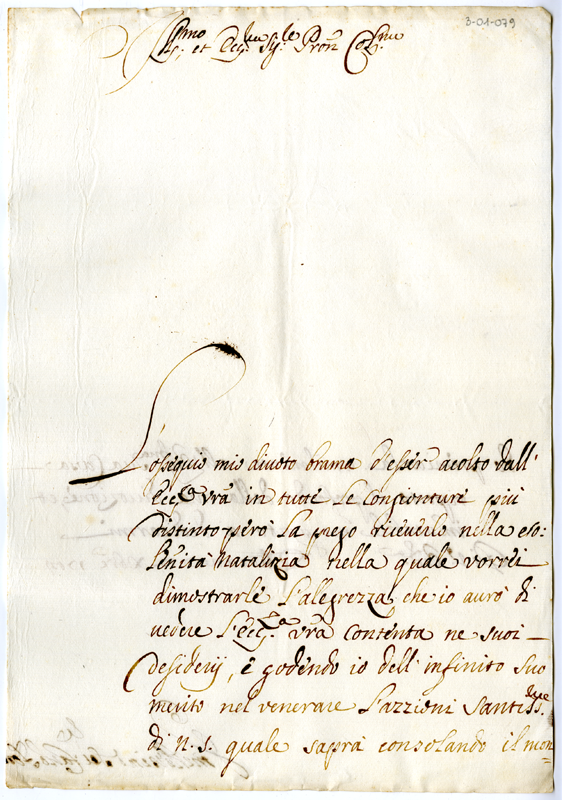 3-01-079
Ill.mo et Ecc.mo Sig.re Pron Col.mo
L'ossequio mio divoto brama d'esser acolto dall'
Ecc.a vra in tutte le congionture più
distinto però la prego riceverlo nella so:
lenità Natalizia nella quale vorrei
dimostrarle l'alegrezza, che io aurò di
vedere l'Ecc.a vra contenta ne suoi
desiderij, e godendo io dell'infinito suo
merito nel venerare l'azzioni Santiss.me
di n. s. quale saprà consolando il mon=